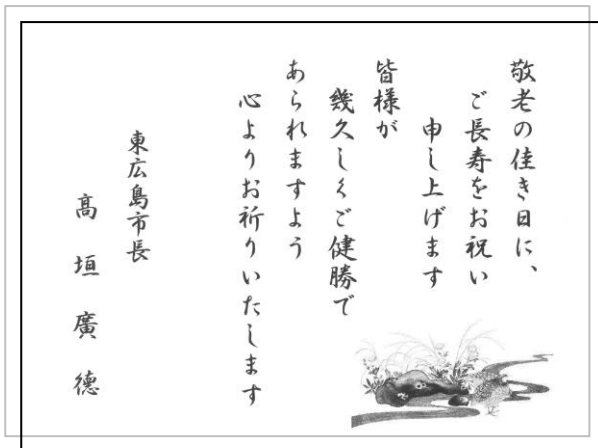 敬老の佳き日に、
ご長寿をお祝い
申し上げます
皆様が
幾久しくご健勝で
あられますよう
心よりお祈りいたします
東広島市長
髙垣廣德